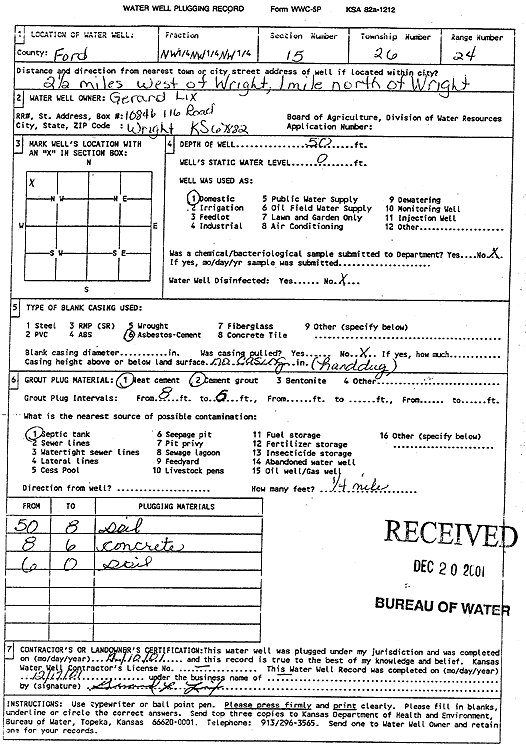 WATER WELL PLUGGING RECORD Form WWC-5P KSA 82a-1212
1 LOCATION OF WATER WELL: Fraction Section Number Township Number Range Number
County: Ford NW1/4NW1/4NW1/4 15 26 24
Distance and direction from nearest town or city street address of well if located within city?
2 1/2 miles west of Wright, 1 mile north of Wright
2 WATER WELL OWNER: Gerard Lix
RR#, St. Address, Box #: 10846 116 Road Board of Agriculture, Division of Water Resources
City, State, ZIP Code : Wright KS 67882 Application Number:
3 MARK WELL'S LOCATION WITH AN "X" IN SECTION BOX:
N
X
N W N E
W E
S W S E
S
4 DEPTH OF WELL.....50.....ft.
WELL'S STATIC WATER LEVEL.....0.....ft.
WELL WAS USED AS:
1 Domestic 5 Public Water Supply 9 Dewatering
2 Irrigation 6 Oil Field Water Supply 10 Monitoring Well
3 Feedlot 7 Lawn and Garden Only 11 Injection Well
4 Industrial 8 Air Conditioning 12 Other..........
Was a chemical/bacteriological sample submitted to Department? Yes....No.X.
If yes, mo/day/yr sample was submitted....................
Water Well Disinfected: Yes...... No..X...
5 TYPE OF BLANK CASING USED:
1 Steel 3 RMP (SR) 5 Wrought 7 Fiberglass 9 Other (specify below)
2 PVC 4 ABS 6 Asbestos-Cement 8 Concrete Tile ....................
Blank casing diameter............in. Was casing pulled? Yes..... No..X.. If yes, how much........
Casing height above or below land surface..no casing..in. (handdug)
6 GROUT PLUG MATERIAL: 1 Neat cement 2 Cement grout 3 Bentonite 4 Other..........
Grout Plug Intervals: From..8..ft. to..6..ft., From......ft. to ......ft., From..... to.....ft.
What is the nearest source of possible contamination:
1 Septic tank 6 Seepage pit 11 Fuel storage 16 Other (specify below)
2 Sewer lines 7 Pit privy 12 Fertilizer storage
3 Watertight sewer lines 8 Sewage lagoon 13 Insecticide storage ....................
4 Lateral lines 9 Feedyard 14 Abandoned water well
5 Cess Pool 10 Livestock pens 15 Oil well/Gas well
Direction from well? .................... How many feet? ..1/4 mile..
FROM TO PLUGGING MATERIALS
50 8 soil
8 6 concrete
6 0 soil
RECEIVED
DEC 20 2001
BUREAU OF WATER
7 CONTRACTOR'S OR LANDOWNER'S CERTIFICATION: This water well was plugged under my jurisdiction and was completed
on (mo/day/year)..........and this record is true to the best of my knowledge and belief. Kansas
Water Well Contractor's License No. .......... This Water Well Record was completed on (mo/day/year)
..........under the business name of ....................
by (signature)
INSTRUCTIONS: Use typewriter or ball point pen. Please press firmly and print clearly. Please fill in blanks,
underline or circle the correct answers. Send top three copies to Kansas Department of Health and Environment,
Bureau of Water, Topeka, Kansas 66620-0001. Telephone: 913/296-3565. Send one to Water Well Owner and retain
one for your records.